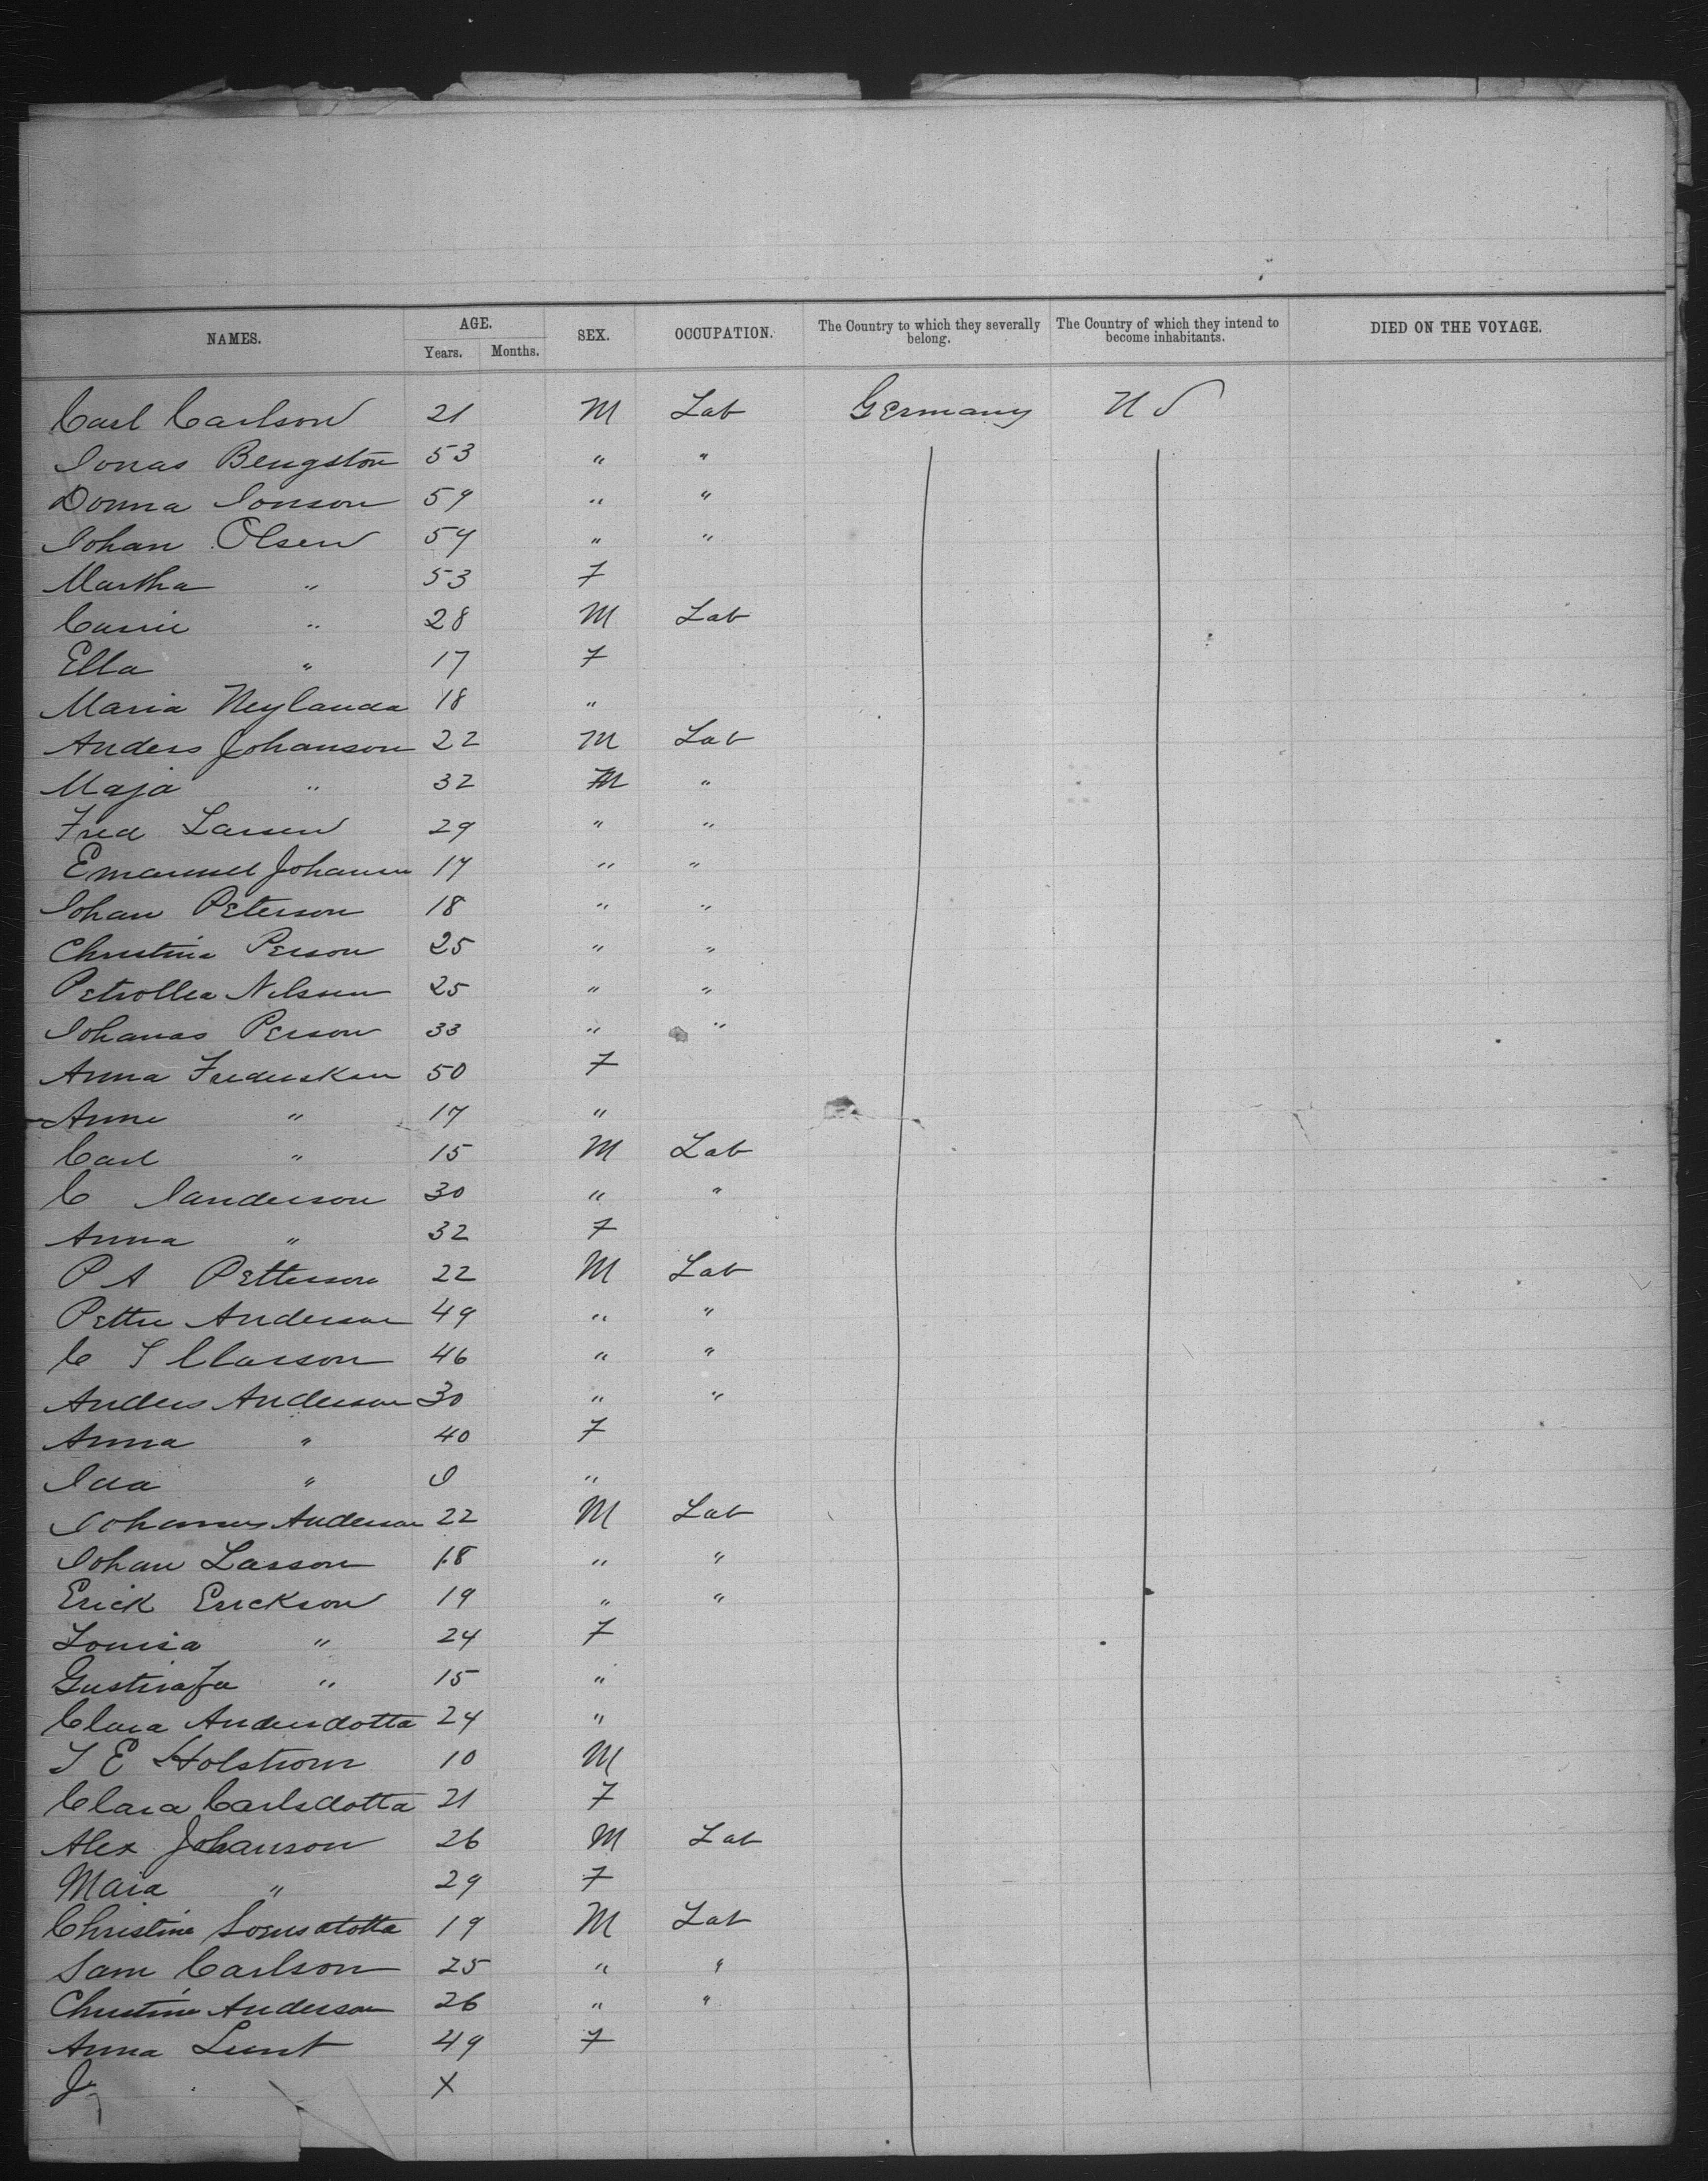 NAMES. AGE. SEX. OCCUPATION. The Country to which they severally belong. The Country of which they intend to become inhabitants. DIED ON THE VOYAGE.
Years. Months.
Carl Carlson 21 M Lab Germany U S
Jonas Bengston 53 " "
Donna Jonson 59 " "
Johan Olsen 54 " "
Martha " 53 F
Carrie " 28 M Lab
Ella " 17 F
Maria Neylanda 18 "
Anders Johanson 22 M Lab
Maja " 32 M "
Fred Larsen 29 " "
Emanuel Johansn 17 " "
Johan Peterson 18 " "
Christina Person 25 " "
Petrollea Nilssen 25 " "
Johanas Person 33 " "
Anna Frederiksen 50 F
Anne " 17 "
Carl " 15 M Lab
C Sanderson 30 " "
Anna " 32 F
P A Petterson 22 M Lab
Petter Anderson 49 " "
C S Classon 46 " "
Anders Anderson 30 " "
Anna " 40 F
Ida " "
Johannes Anderson 22 M Lab
Johan Lasson 18 " "
Erick Erickson 19 " "
Louisa " 24 F
" 15 "
Clara Andersdotta 24 "
S E Holstrom 10 M
Clara Carlsdotta 21 F
Alex Johanson 26 M Lab
Maia " 29 F
Christine 19 M Lab
Sam Carlson 25 " "
Christine Anderson 26 " "
Anna Lunt 49 F
J X